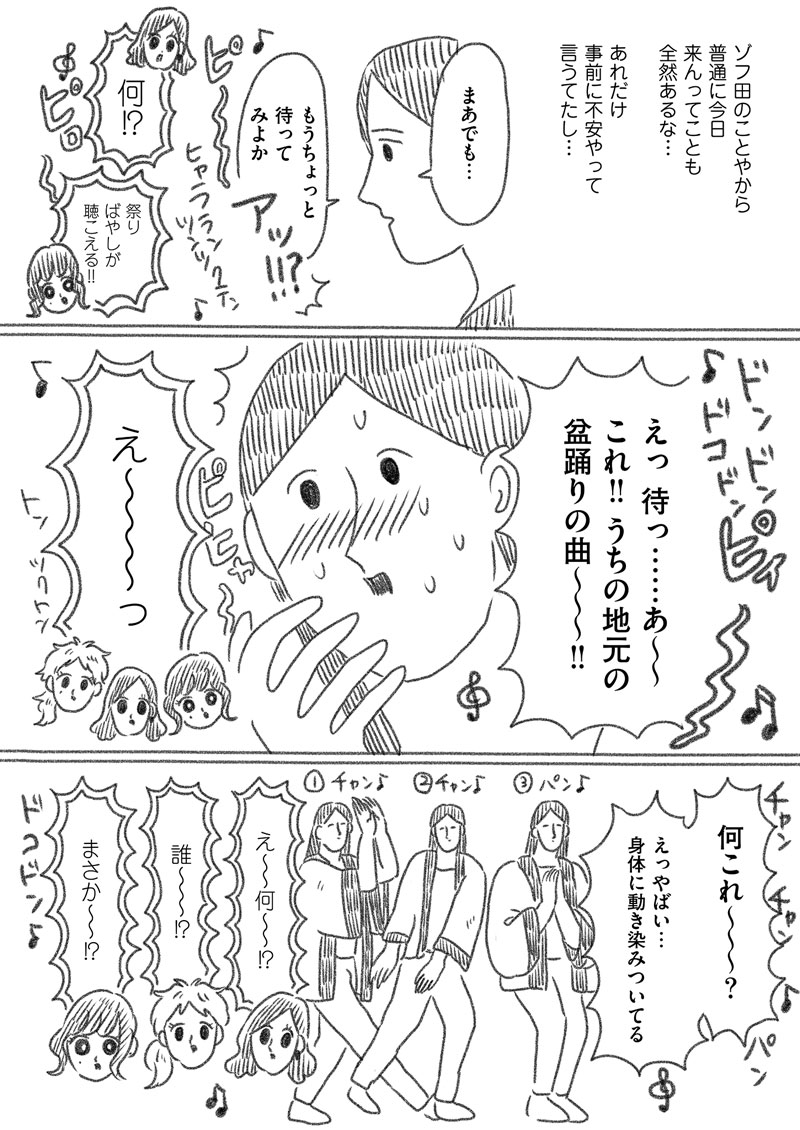 ゾフ田のことやから
普通に今日
来んってことも
全然あるな…
あれだけ
事前に不安やって
言うてたし…
まあでも…
もうちょっと
待って
みよか
アッ!!?
ピ〜
ピロ
ヒャラララン
ツンツクテン
何!?
祭り
ばやしが
聴こえる!!
ドンドン
ドコドン
ピィ
えっ 待っ……あ〜〜
これ!! うちの地元の
盆踊りの曲
〜〜〜!!
ピピャ〜
え〜〜〜〜っ
トン
ツコテン
チャン
チャン
パン
何これ〜〜〜?
えっやばい…
身体に動き染みついてる
③パン♪
②チャン♪
①チャン♪
え〜〜何〜〜!?
誰〜〜!?
まさか〜〜!?
ドコドン♪